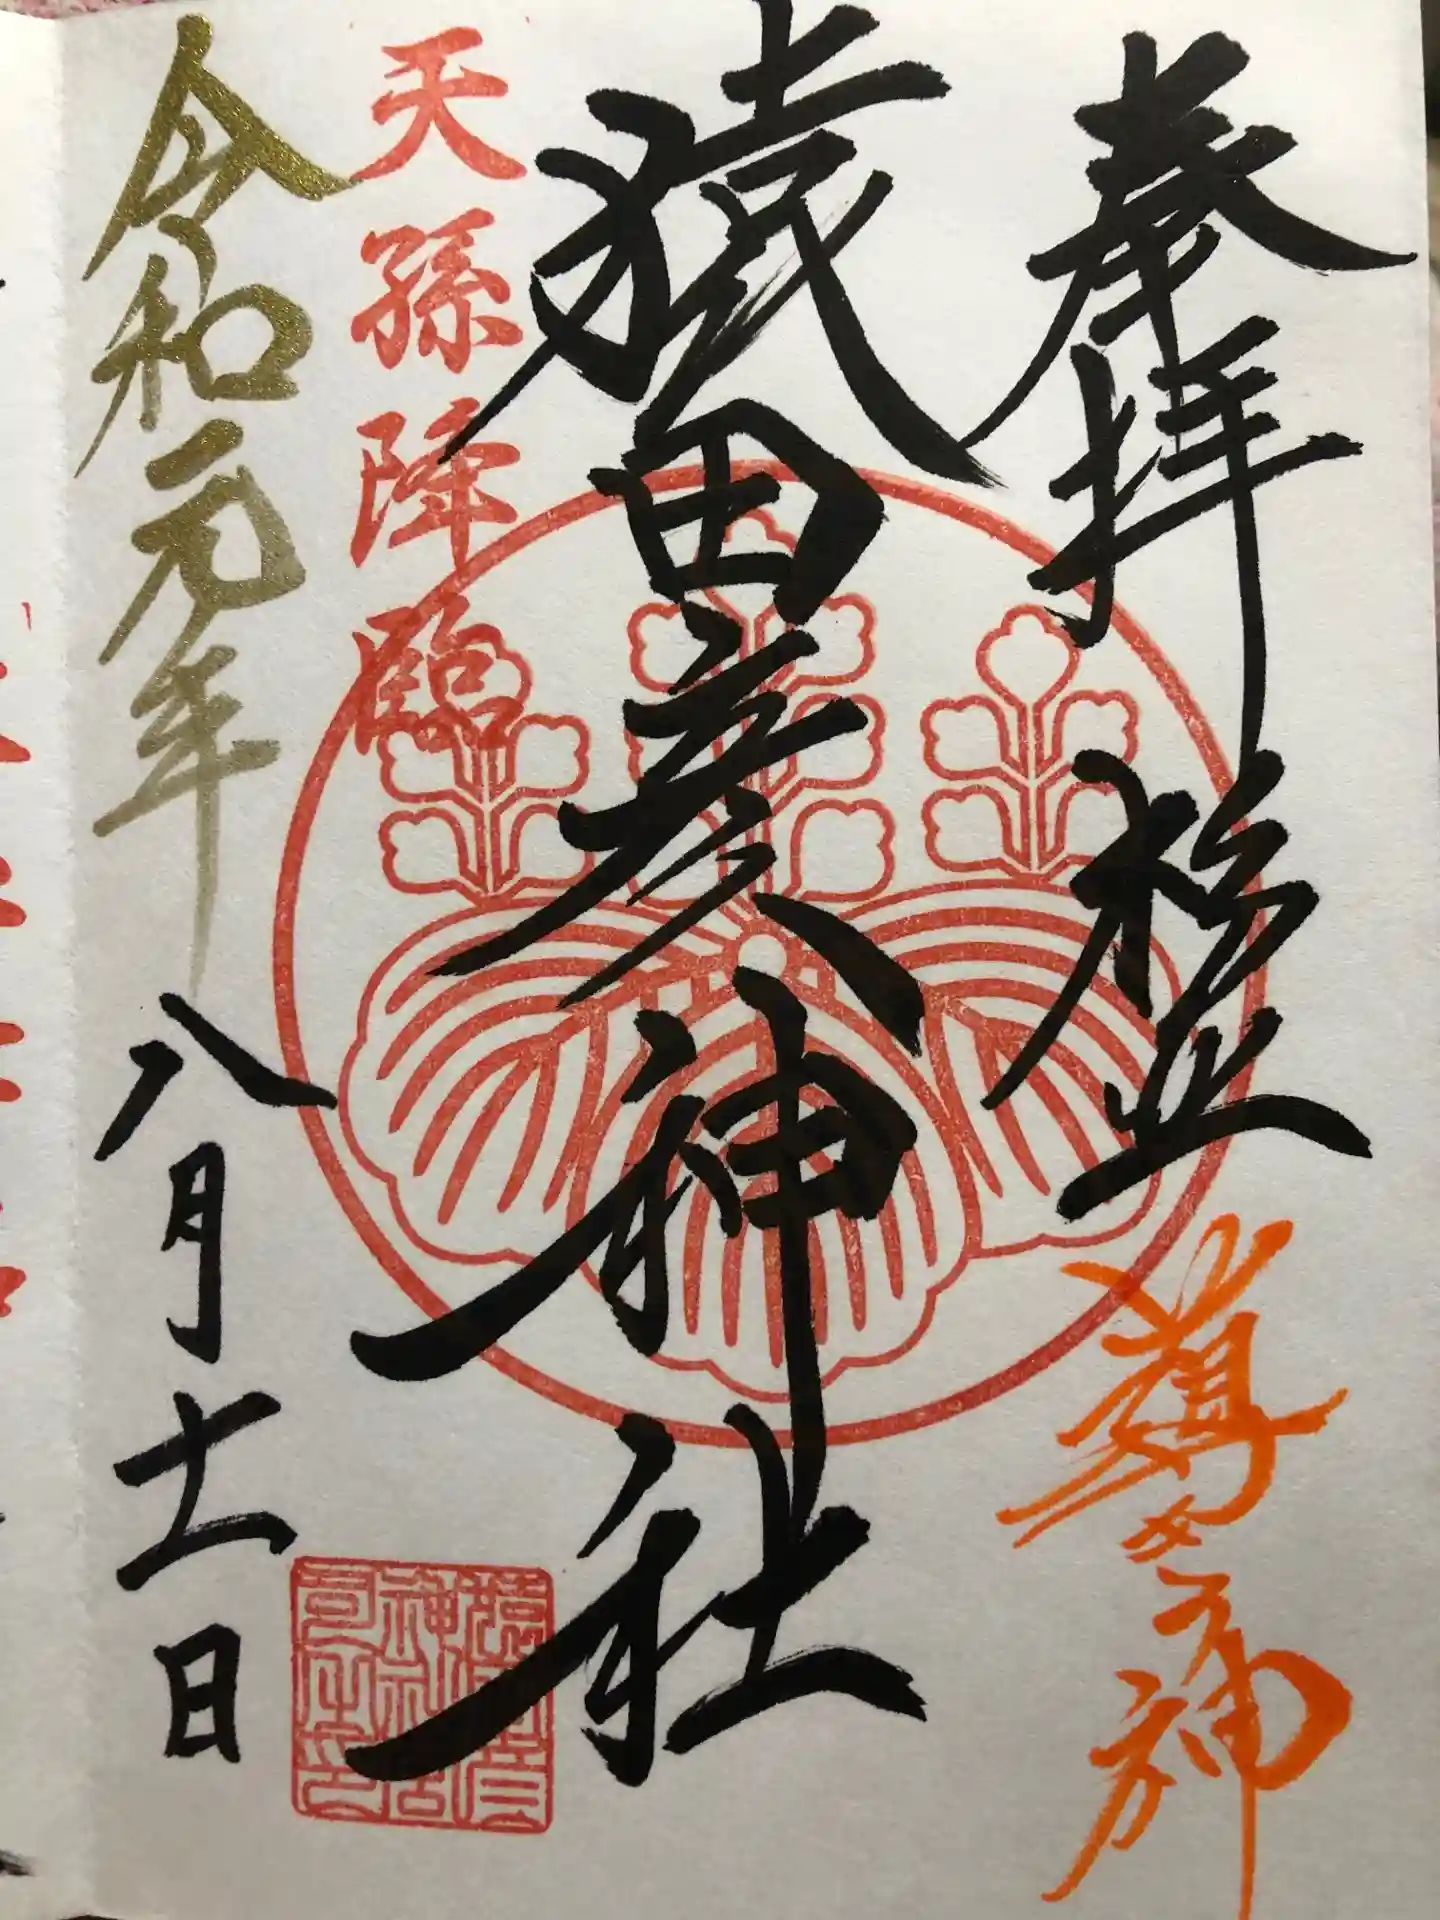 奉拝
導きの神
猿田彦神社
天孫降臨
令和元年八月十一日